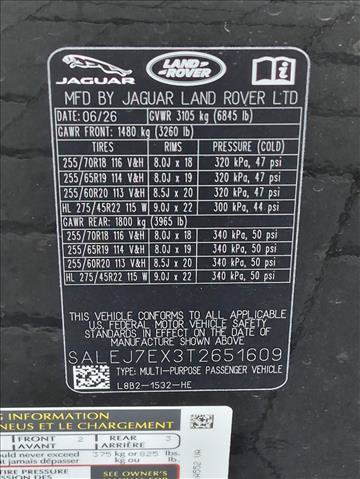 JAGUAR LAND ROVER
MFD BY JAGUAR LAND ROVER LTD
DATE: 06/26 GVWR 3105 kg (6845 lb)
GAWR FRONT: 1480 kg (3260 lb)
TIRES RIMS PRESSURE (COLD)
255/70R18 116 V&H 8.0J x 18 320 kPa, 47 psi
255/65R19 114 V&H 8.0J x 19 320 kPa, 47 psi
255/60R20 113 V&H 8.5J x 20 320 kPa, 47 psi
HL 275/45R22 115 W 9.0J x 22 300 kPa, 44 psi
GAWR REAR: 1800 kg (3965 lb)
255/70R18 116 V&H 8.0J x 18 340 kPa, 50 psi
255/65R19 114 V&H 8.0J x 19 340 kPa, 50 psi
255/60R20 113 V&H 8.5J x 20 340 kPa, 50 psi
HL 275/45R22 115 W 9.0J x 22 340 kPa, 50 psi
THIS VEHICLE CONFORMS TO ALL APPLICABLE
U.S. FEDERAL MOTOR VEHICLE SAFETY
STANDARDS IN EFFECT ON THE DATE OF
MANUFACTURE SHOWN ABOVE
SALEJ7EX3T2651609
TYPE: MULTI-PURPOSE PASSENGER VEHICLE
L8B2-1532-HE
G INFORMATION
NEUS ET LE CHARGEMENT
FRONT 2 REAR 3
AVANT ARRIÈRE
ould never exceed 375 kg or 825 lbs.
it jamais dépasser kg ou lb.
TIRE PRESSURE SEE OWNER'S